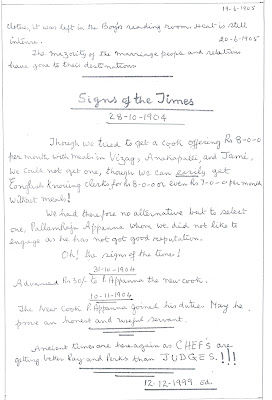 19-6-1905
clothes, it was left in the Boy's reading room. Heat is still
intense. 20-6-1905
The majority of the marriage people and relations
have gone to their destinations
Signs of the Times
28-10-1904
Though we tried to get a Cook offering Rs 8-0-0
per month with meals in Vizag, Anakapalli, and Jami,
We could not get one, though we can easily get
English knowing clerks for Rs 8-0-0 or even Rs 7-0-0 per month
without meals!
We had therefore no alternative but to select
one, Pallamraju Appanna whom we did not like to
engage as he has not got good reputation.
Oh! the signs of the times!
31-10-1904
Advanced Rs 30/- to P. Appanna the new cook.
10-11-1904
The New Cook P. Appanna joined his duties. May he
prove an honest and useful servant.
Ancient times are here again as CHEF'S are
getting better Pay and Perks than JUDGES.!!!
12-12-1999 Ed.